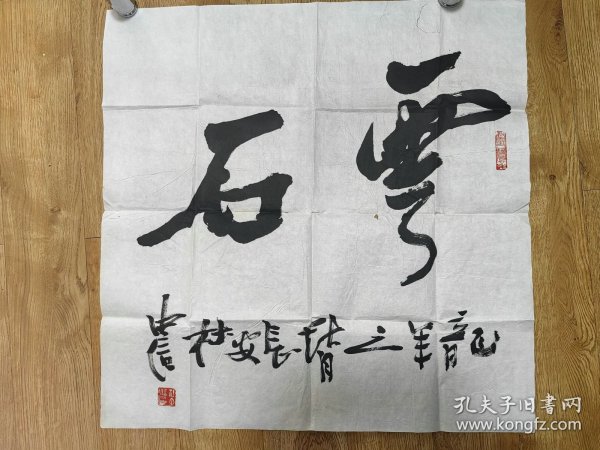 雲石
龍年之 長安杜
中信
孔夫子旧书网
www.kongfz.com